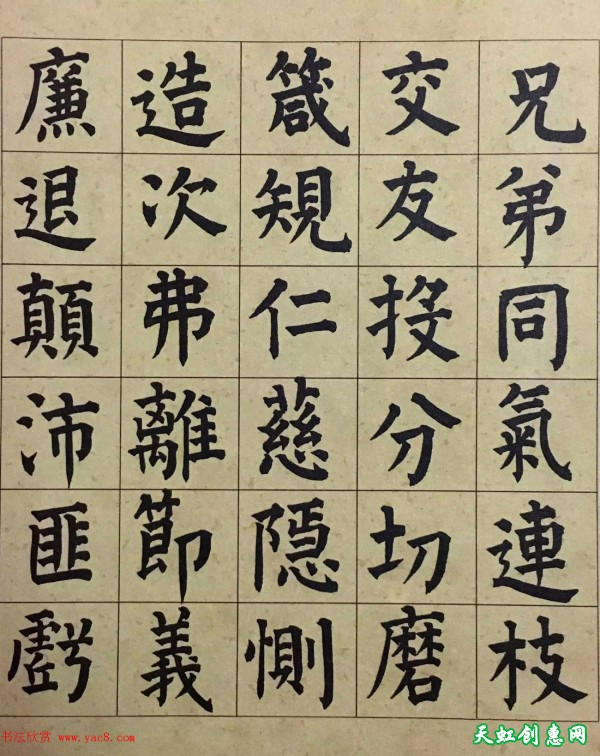 兄弟同氣連枝
交友投分切磨
箴規仁慈隱惻
造次弗離節義
廉退顛沛匪虧
书法欣赏 www.yac8.com
天虹创惠网